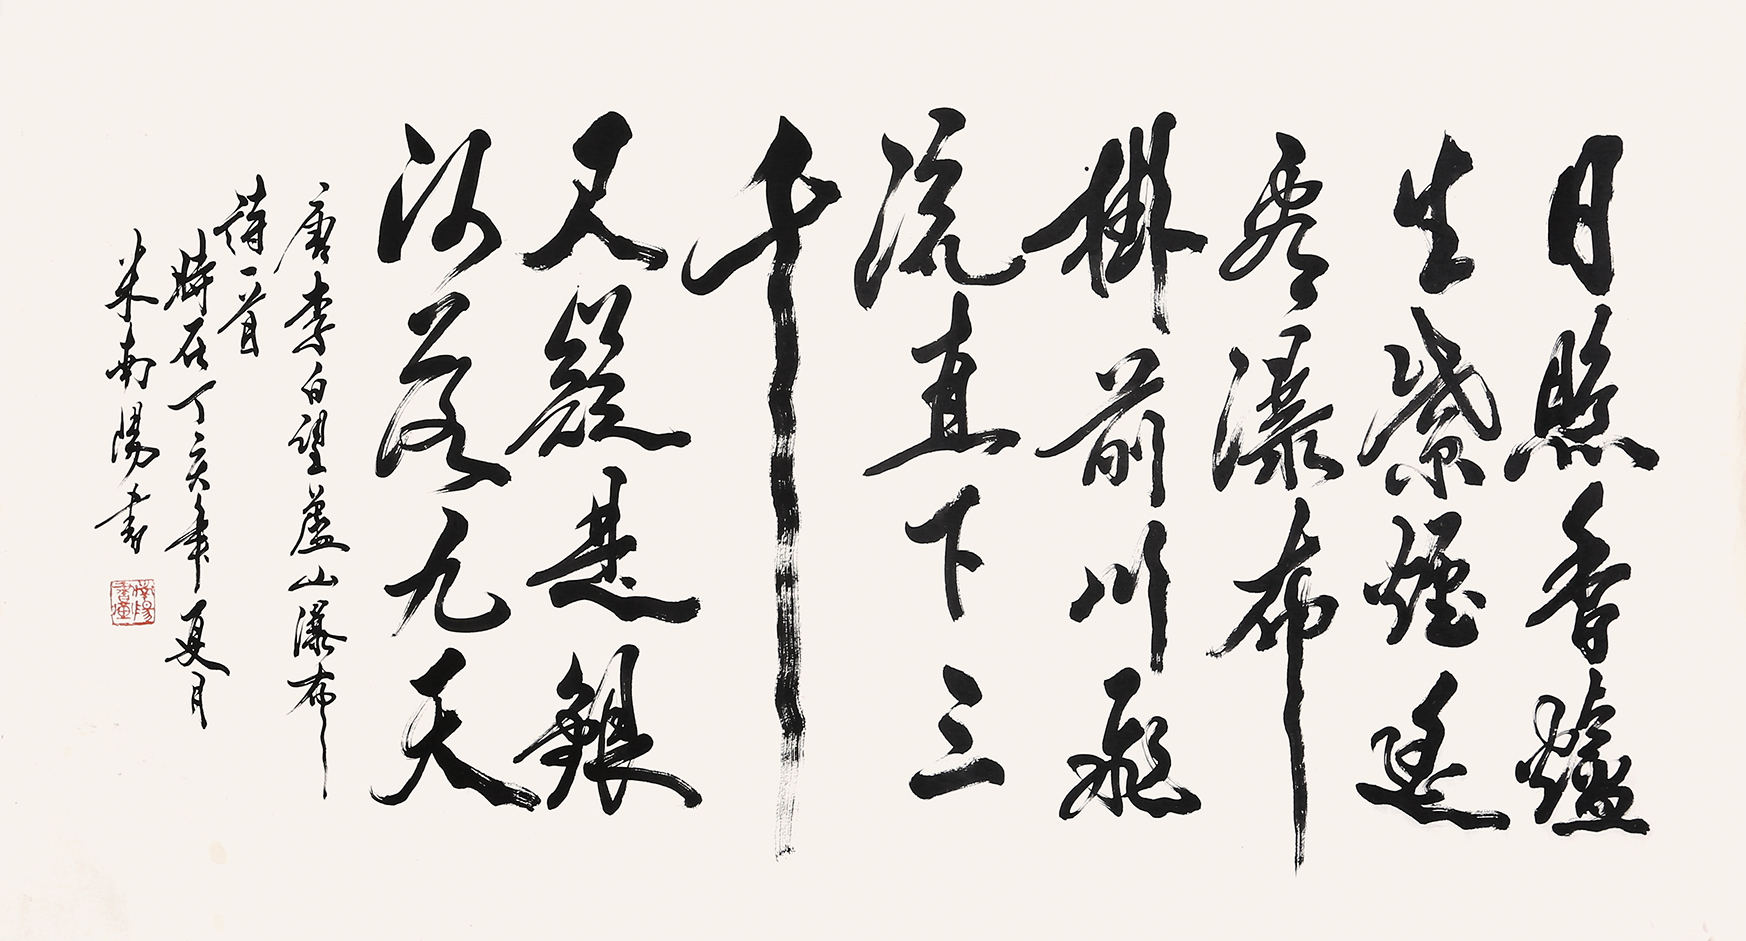 日照香爐
生紫煙遥
看瀑布
掛前川飛
流直下三
千
尺疑是銀
河落九天
唐李白望廬山瀑布
詩一首
時在丁亥年夏月
米南陽書
南陽